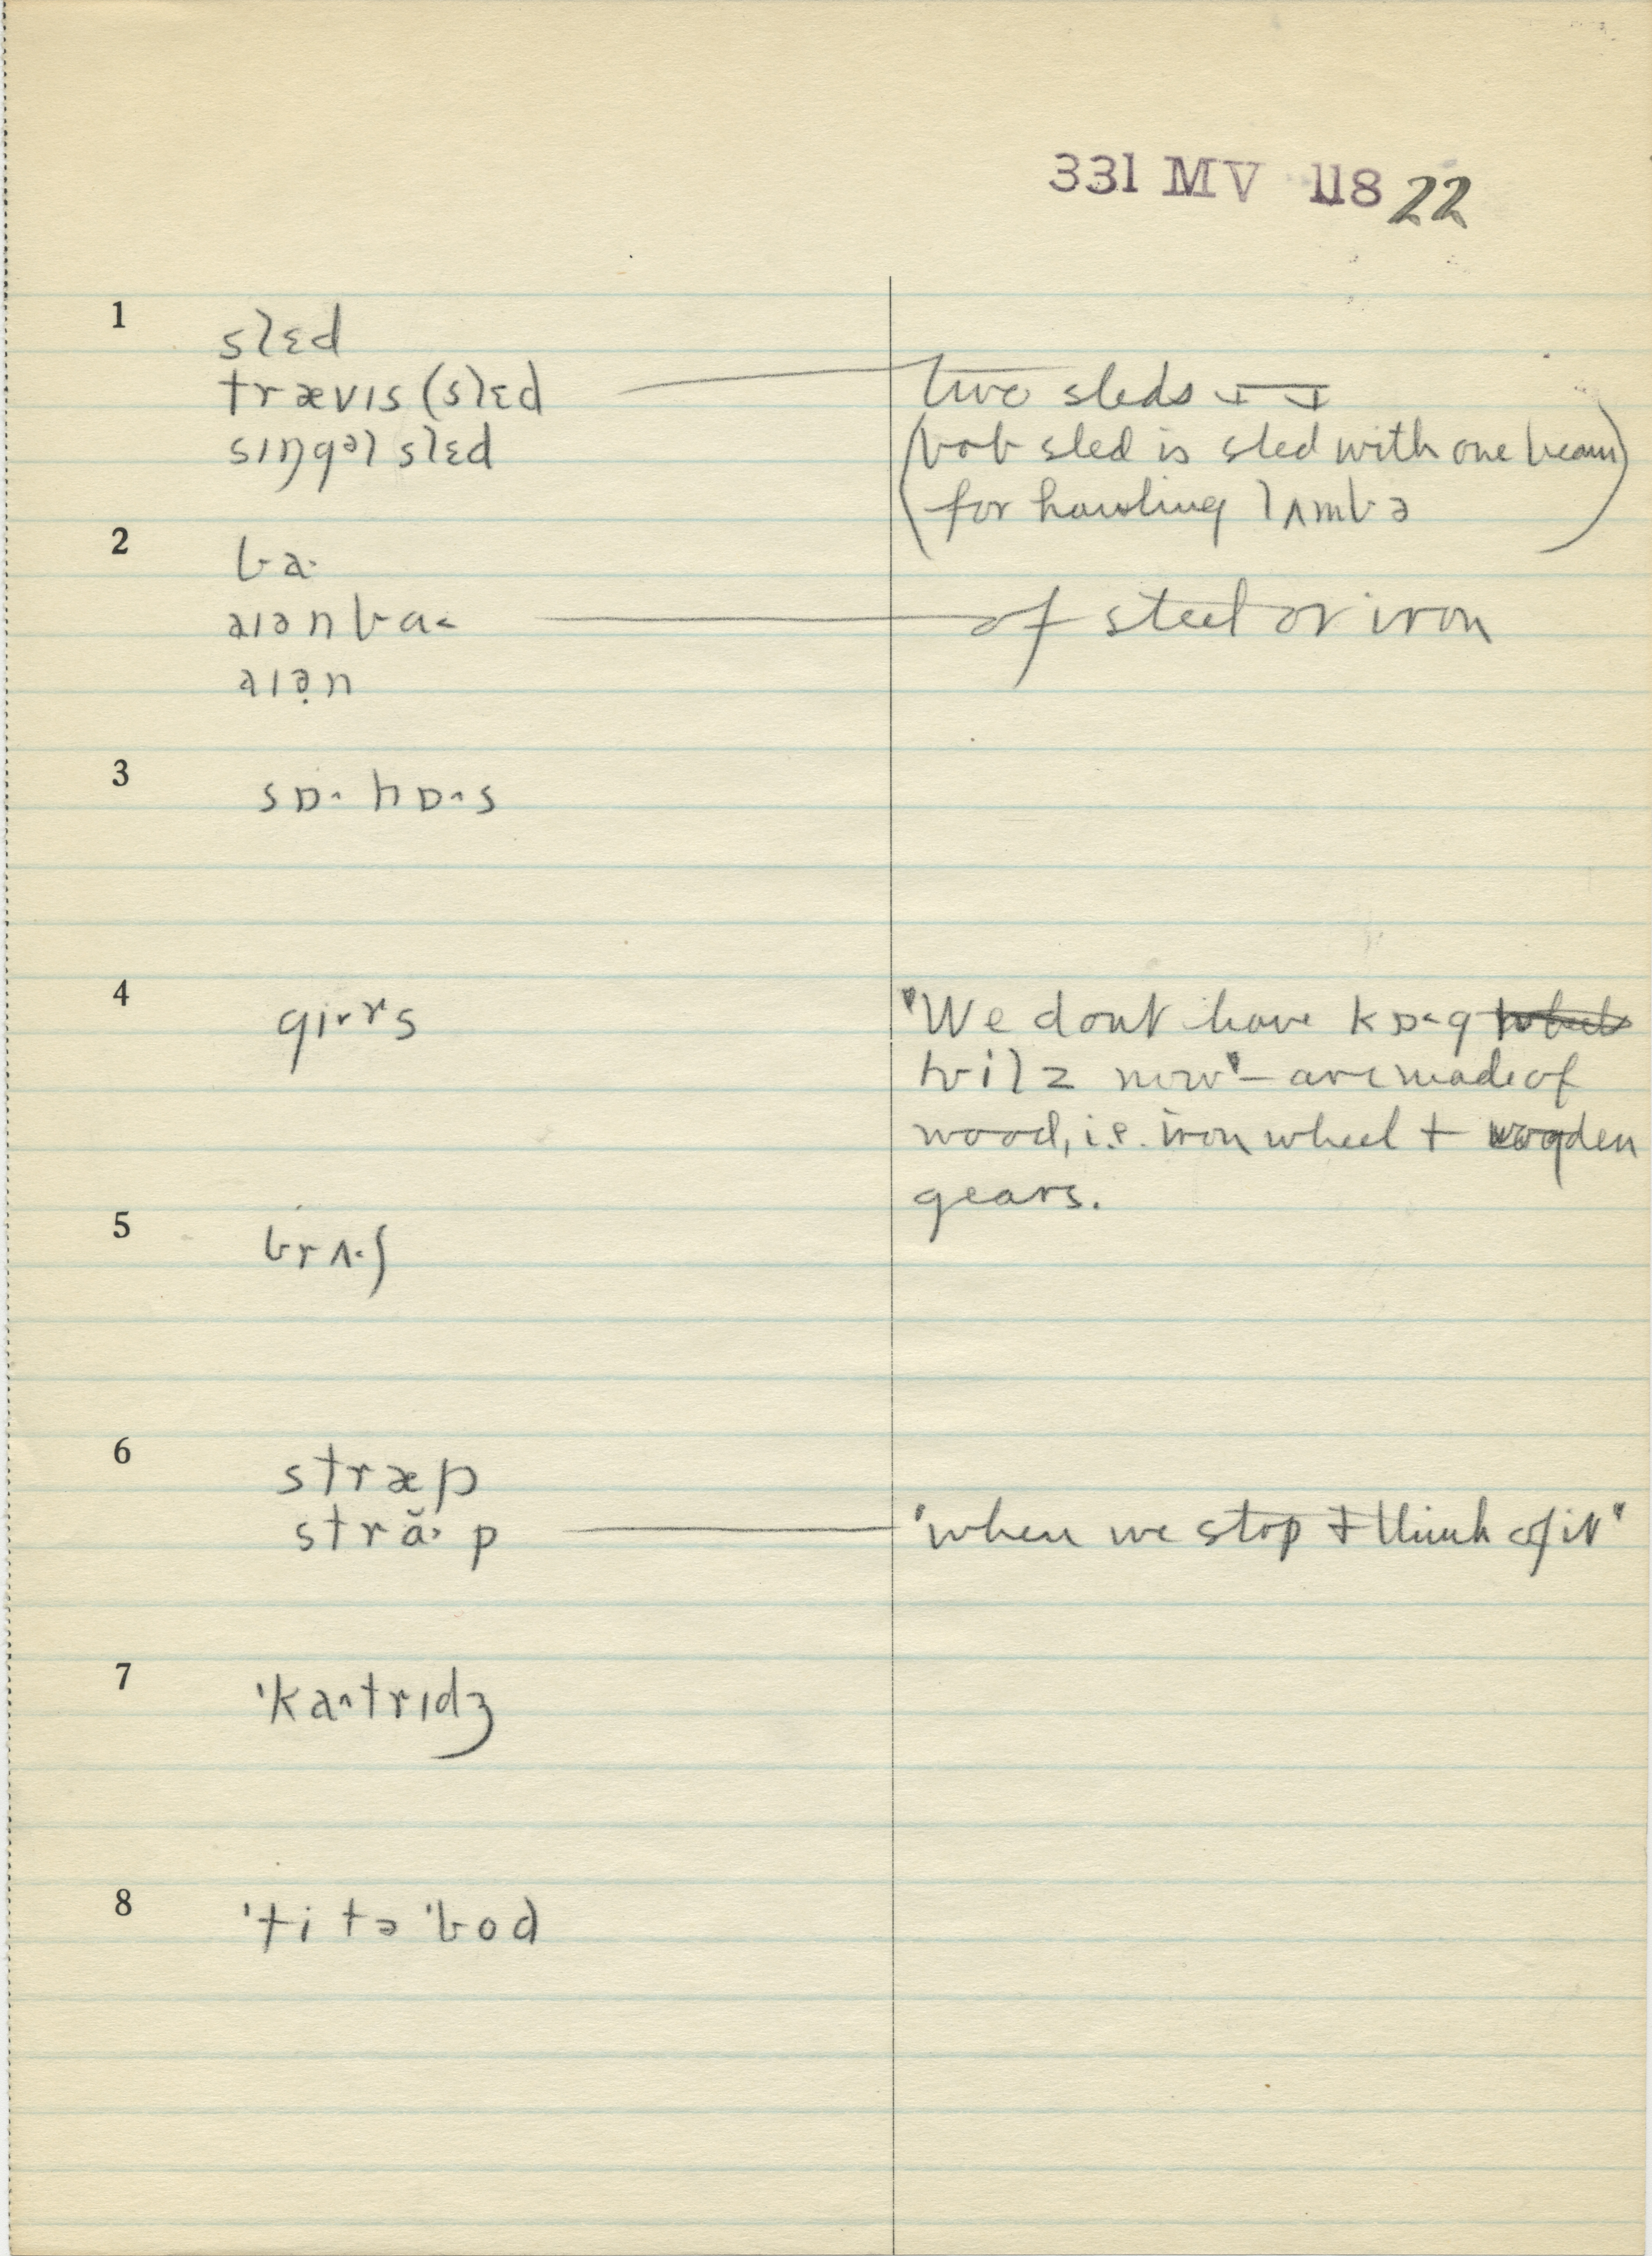 331 MV 118 22
1
slɛd
trævɪs (slɛd
two sleds
sɪŋgəl slɛd
(bob sled is sled with one beam)
for hauling lʌmbə
2
ba·
aɪənba˂
of steel or iron
aɪə̣n
3
sɒ· hɒ·s
4
gɪ·rs
"We dont have kɒ˂g
wilz now" – are made of
wood, i.e. iron wheel + wooden
gears.
5
brʌ·ʃ
6
stræp
stră· p
"when we stop & think of it"
7
'ka^trɪdʒ
8
'ti tə 'bod